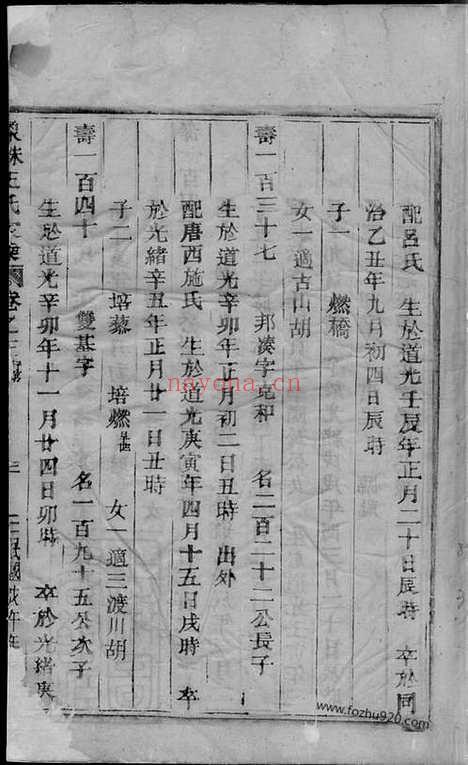 配呂氏 生於道光壬辰年正月二十日辰時 卒於同
治乙丑年九月初四日辰時
子一 燃橋
女一適古山胡
壽一百三十七 邦湊字克和 名二百二十二公長子
生於道光辛卯年正月初二日丑時 出外
配唐西施氏 生於道光庚寅年四月十五日戌時 卒
於光緒辛丑年正月廿一日丑時
子二 培慕 培燃 女一適三渡川胡
壽一百四十 雙基字 名一百九十五公次子
生於道光辛卯年十一月廿四日卯時 卒於光緒庚
王氏宗譜 卷之 三 民國 戌年
nayona.cn
www.fozhu920.com